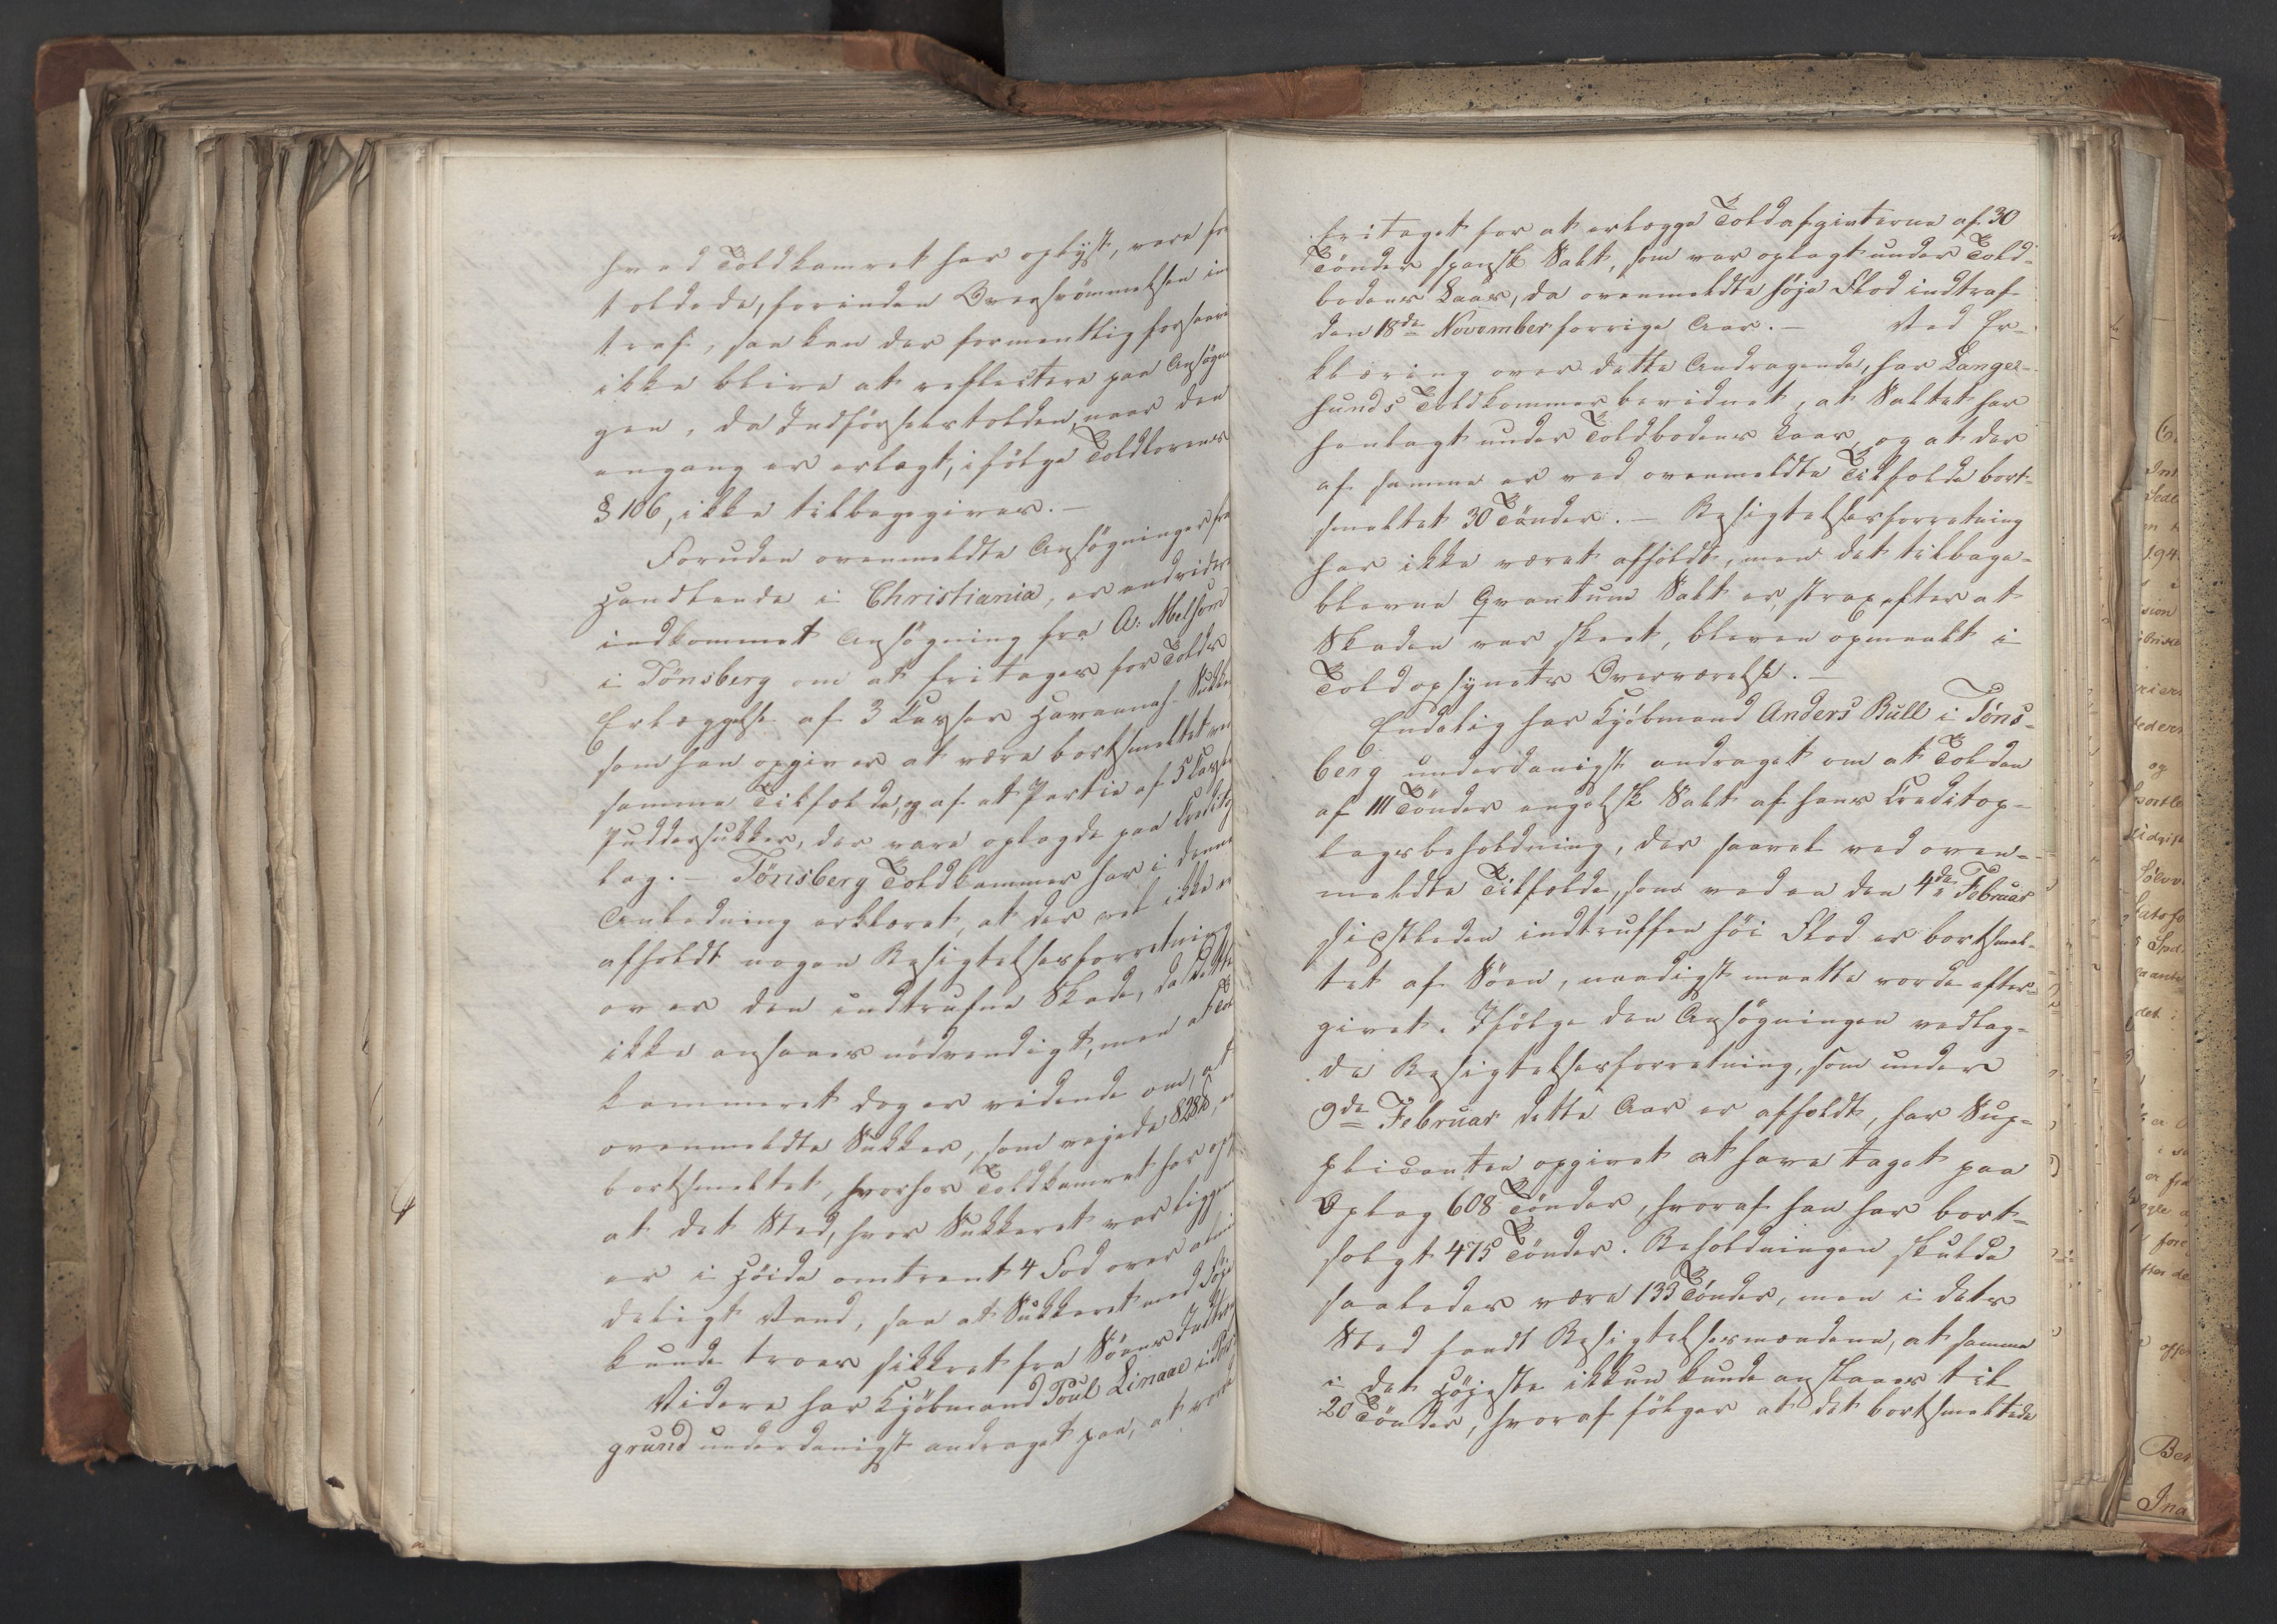 hvad Toldkamret har oplyst, være for
toldede, forinden Oversvømmelsen ind
traf, saa kan der formentlig forsaavidt
ikke blive at reflectere paa Ansøgnin
gen, da Indførselstolden, naar den
engang er erlagt, ifølge Toldlovens
§ 106, ikke tilbagegives. —
Foruden ovenmeldte Ansøgninger fra
Handlende i Christiania, er endvidere
indkommet Ansøgning fra A. Melsom
i Tönsberg om at fritages for Tolds
Erlæggelse af 3 Kasser Havannah Sukker
som han opgiver at være bortsmeltet ved
samme Tilfælde, og af et Partie af 5 Kasser
Puddersukker, der vare oplagde paa Creditop
lag. — Tönsberg Toldkammer har i denne
Anledning erklæret, at der vel ikke er
afholdt nogen Besigtelsesforretning
over den indtrufne Skade, da dette
ikke ansaaes nødvendigt, men at Told
kammeret dog er vidende om, at
ovenmeldte Sukker, som veiede 828 ℔, er
bortsmeltet, hvorhos Toldkamret har opl
at det Sted, hvor Sukkeret var liggende
er i Høide omtrent 4 Fod over almin
deligt Vand, saa at Sukkeret med Føie
kunde troes sikkret fra Søens
Videre har Kjøbmand Poul Linaae i
grund underdanigst andraget paa, at vorde
fritaget for at erlægge Toldafgivterne af 30
Tønder spansk Salt, som var oplagt under Told-
bodens Laas, da ovenmeldte høje Flod indtraf
den 18de November forrige Aar. — Ved Er-
klæring over dette Andragende, har Lange-
sunds Toldkammer bevidnet, at Saltet har
henlagt under Toldbodens Laas, og at der
af samme er ved ovenmeldte Tilfælde bort-
smeltet 30 Tønder. — Besigtelsesforretning
har ikke været afholdt, men det tilbage-
blevne Qvantum Salt er, strax efter at
Skaden var skeet, bleven opmaalt i
Toldopsynets Overværelse. —
Endelig har Kjøbmand Anders Bull i Töns-
berg underdanigst andraget om at Tolden
af 111 Tønder engelsk Salt af hans Creditop-
lagsbeholdning, der saavel ved oven-
meldte Tilfælde, som ved en den 4de Februar
sidstleden indtruffen høi Flod er bortsmel-
tet af Søen, naadigst maatte vorde efter-
givet. Ifølge den Ansøgningen vedlag-
de Besigtelsesforretning, som under
9de Februar dette Aar er afholdt, har Sup-
plicanten opgivet at have taget paa
Oplag 608 Tønder, hvoraf han har bort-
solgt 475 Tønder. Beholdningen skulde
saaledes være 133 Tønder, men i dets
Sted fandt Besigtelsesmændene, at samme
i det Højeste ikkun kunde ansaaes til
20 Tønder, hvoraf følger at det bortsmeltede